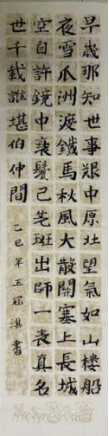 早歲那知世事艱中原北望氣如山樓船
夜雪瓜洲渡鐵馬秋風大散關塞上長城
空自許鏡中衰鬢已先斑出師一表真名
世千載誰堪伯仲間
乙巳年 書